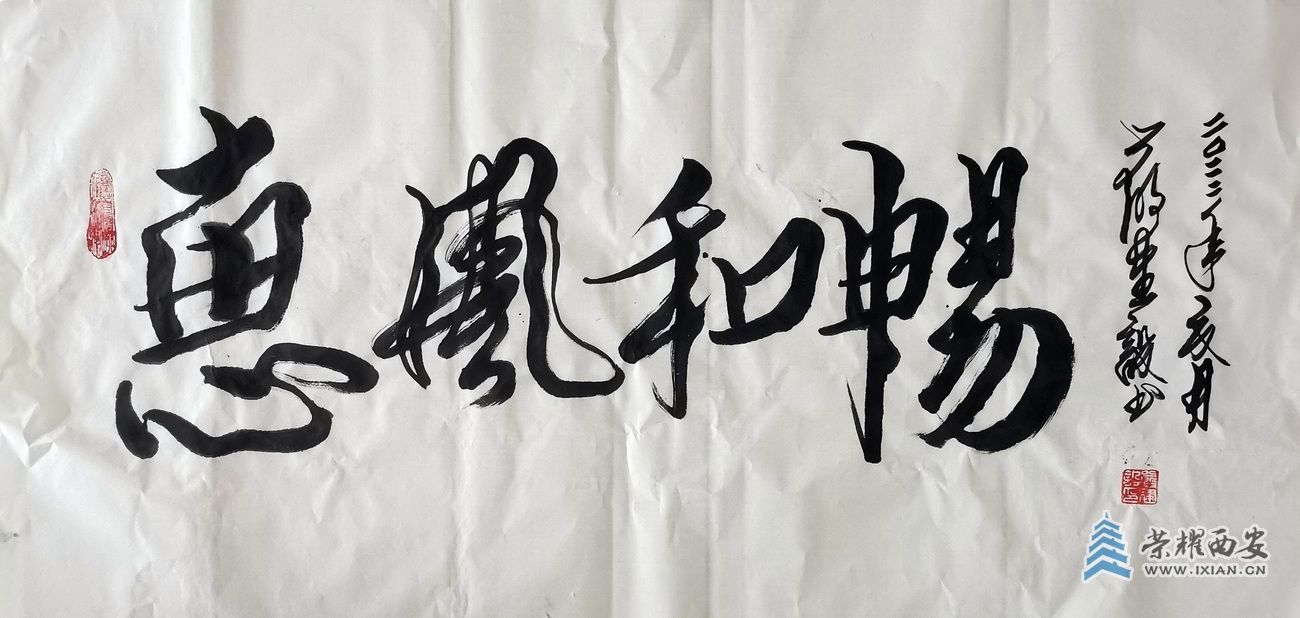 惠風和暢
二〇二二年夏月
荣耀西安
WWW.IXIAN.CN